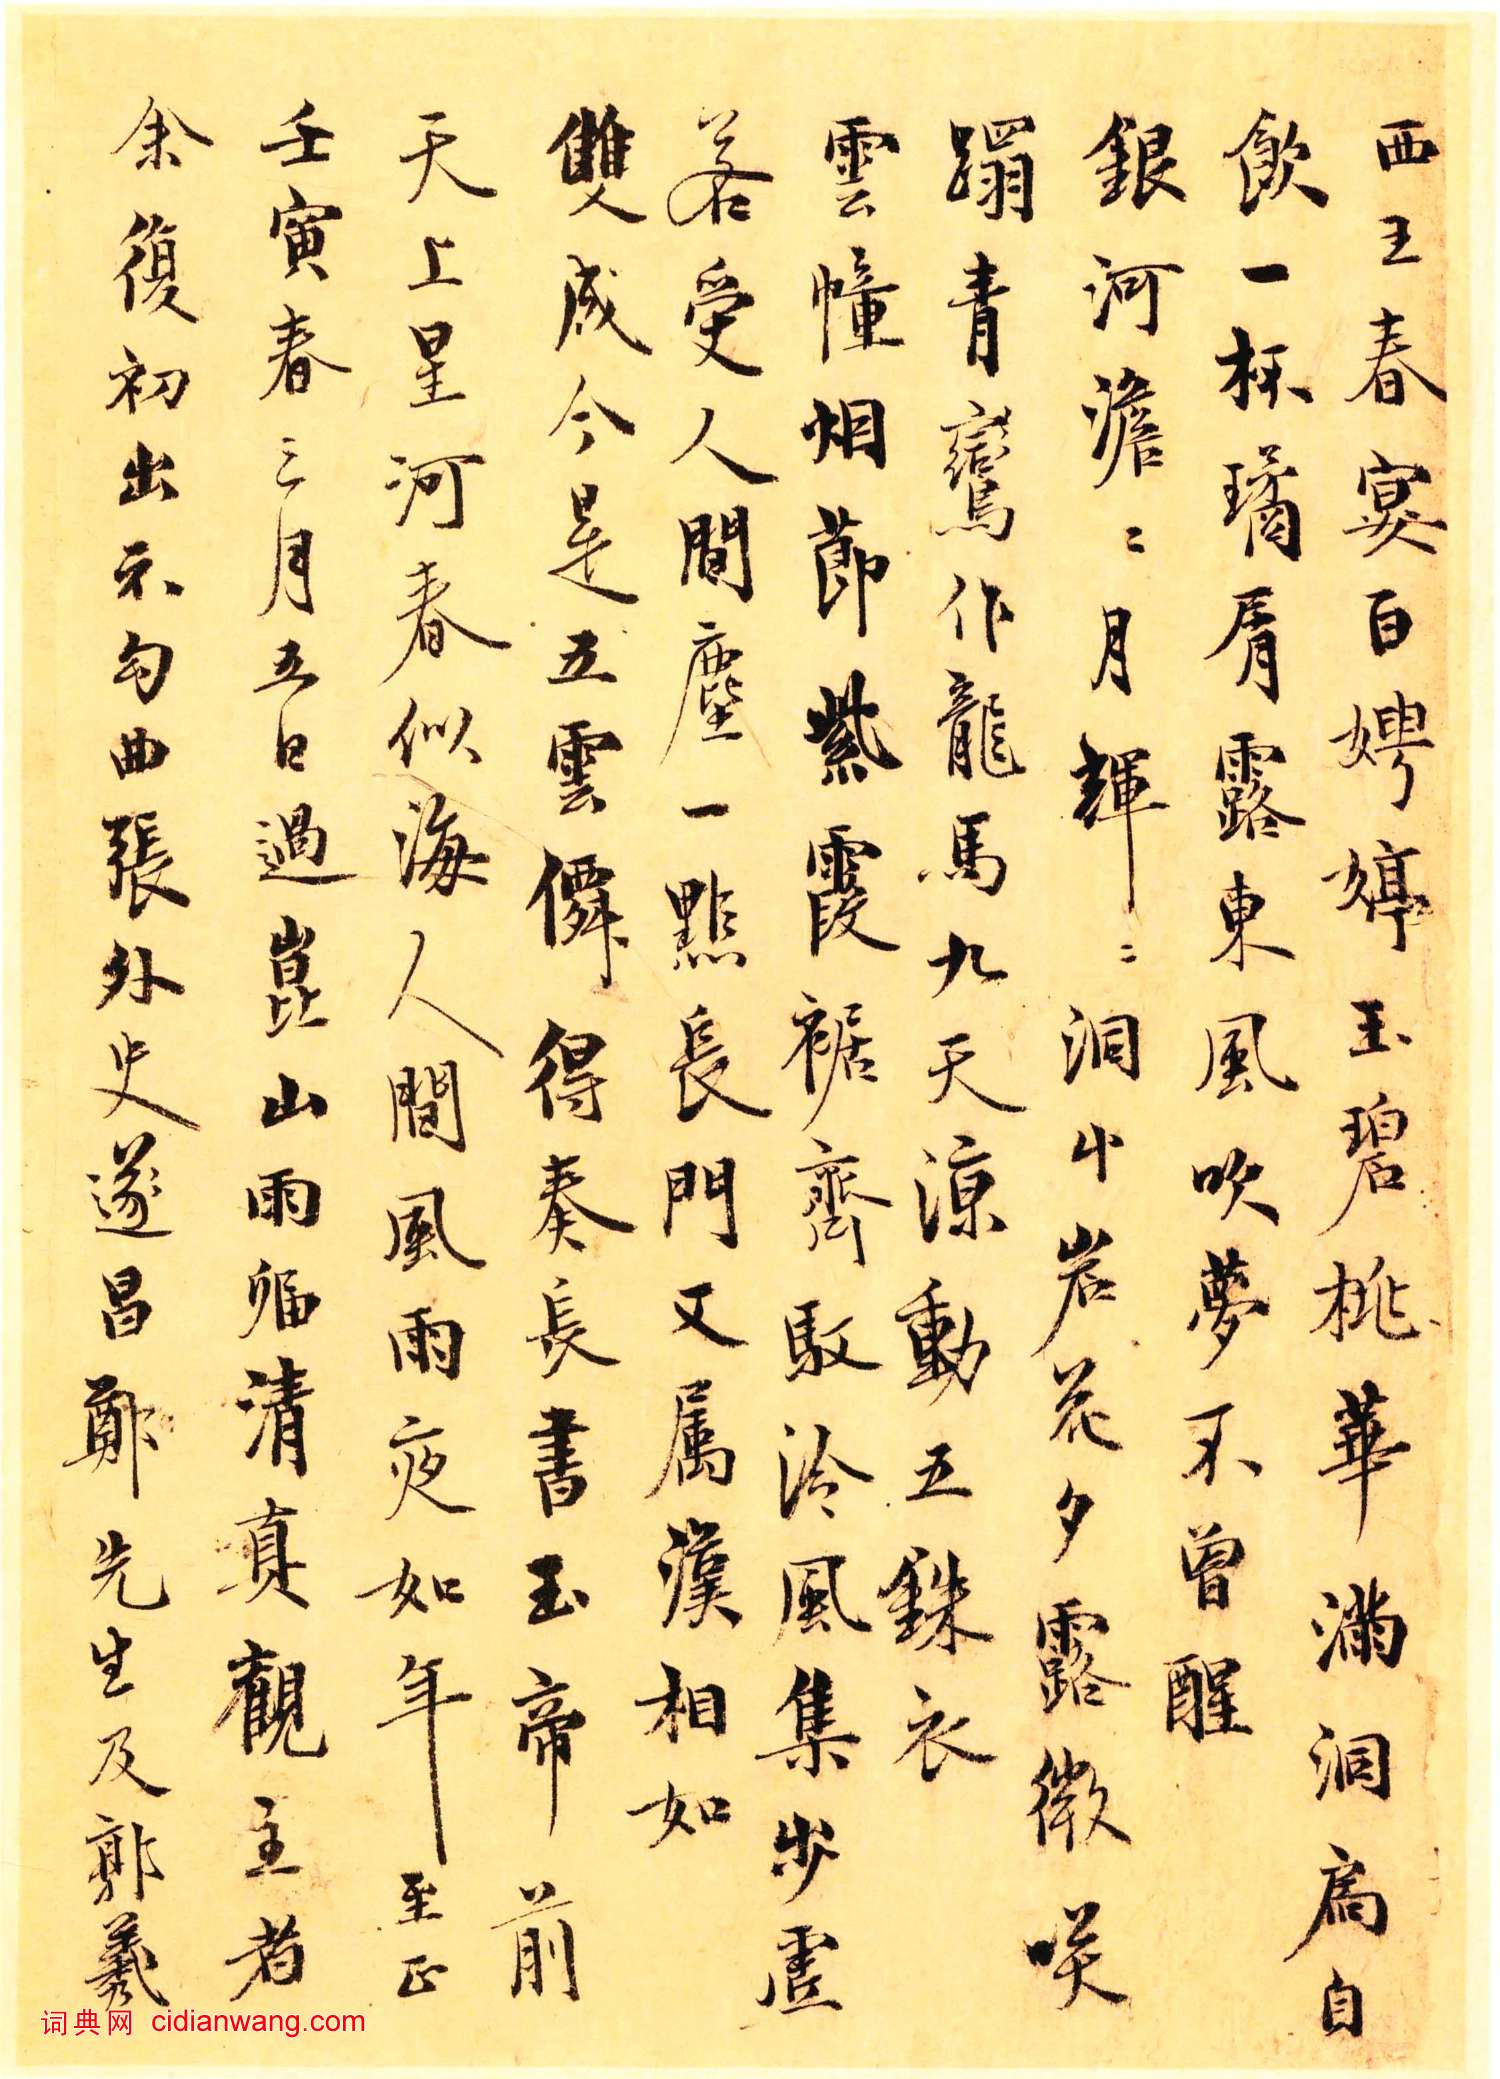 西王春宴百娉婷玉碧桃華滿洞扃自
飲一杯璚屑露東風吹夢不曾醒
銀河澹〻月輝〻洞中岩花夕露微咲
蹋青鸞作龍馬九天涼動五銖衣
雲幢烟莭紫霞裾齊馭泠風集步虛
若受人間塵一點長門又属漢相如
雙成今是五雲僊得奏長書玉帝前
天上星河春似海人間風雨夜如年至正
壬寅春三月五日過崑山雨宿清真觀主者
余復初出示句曲張外史遂昌鄭先生及郭羲
词典网 cidianwang.com